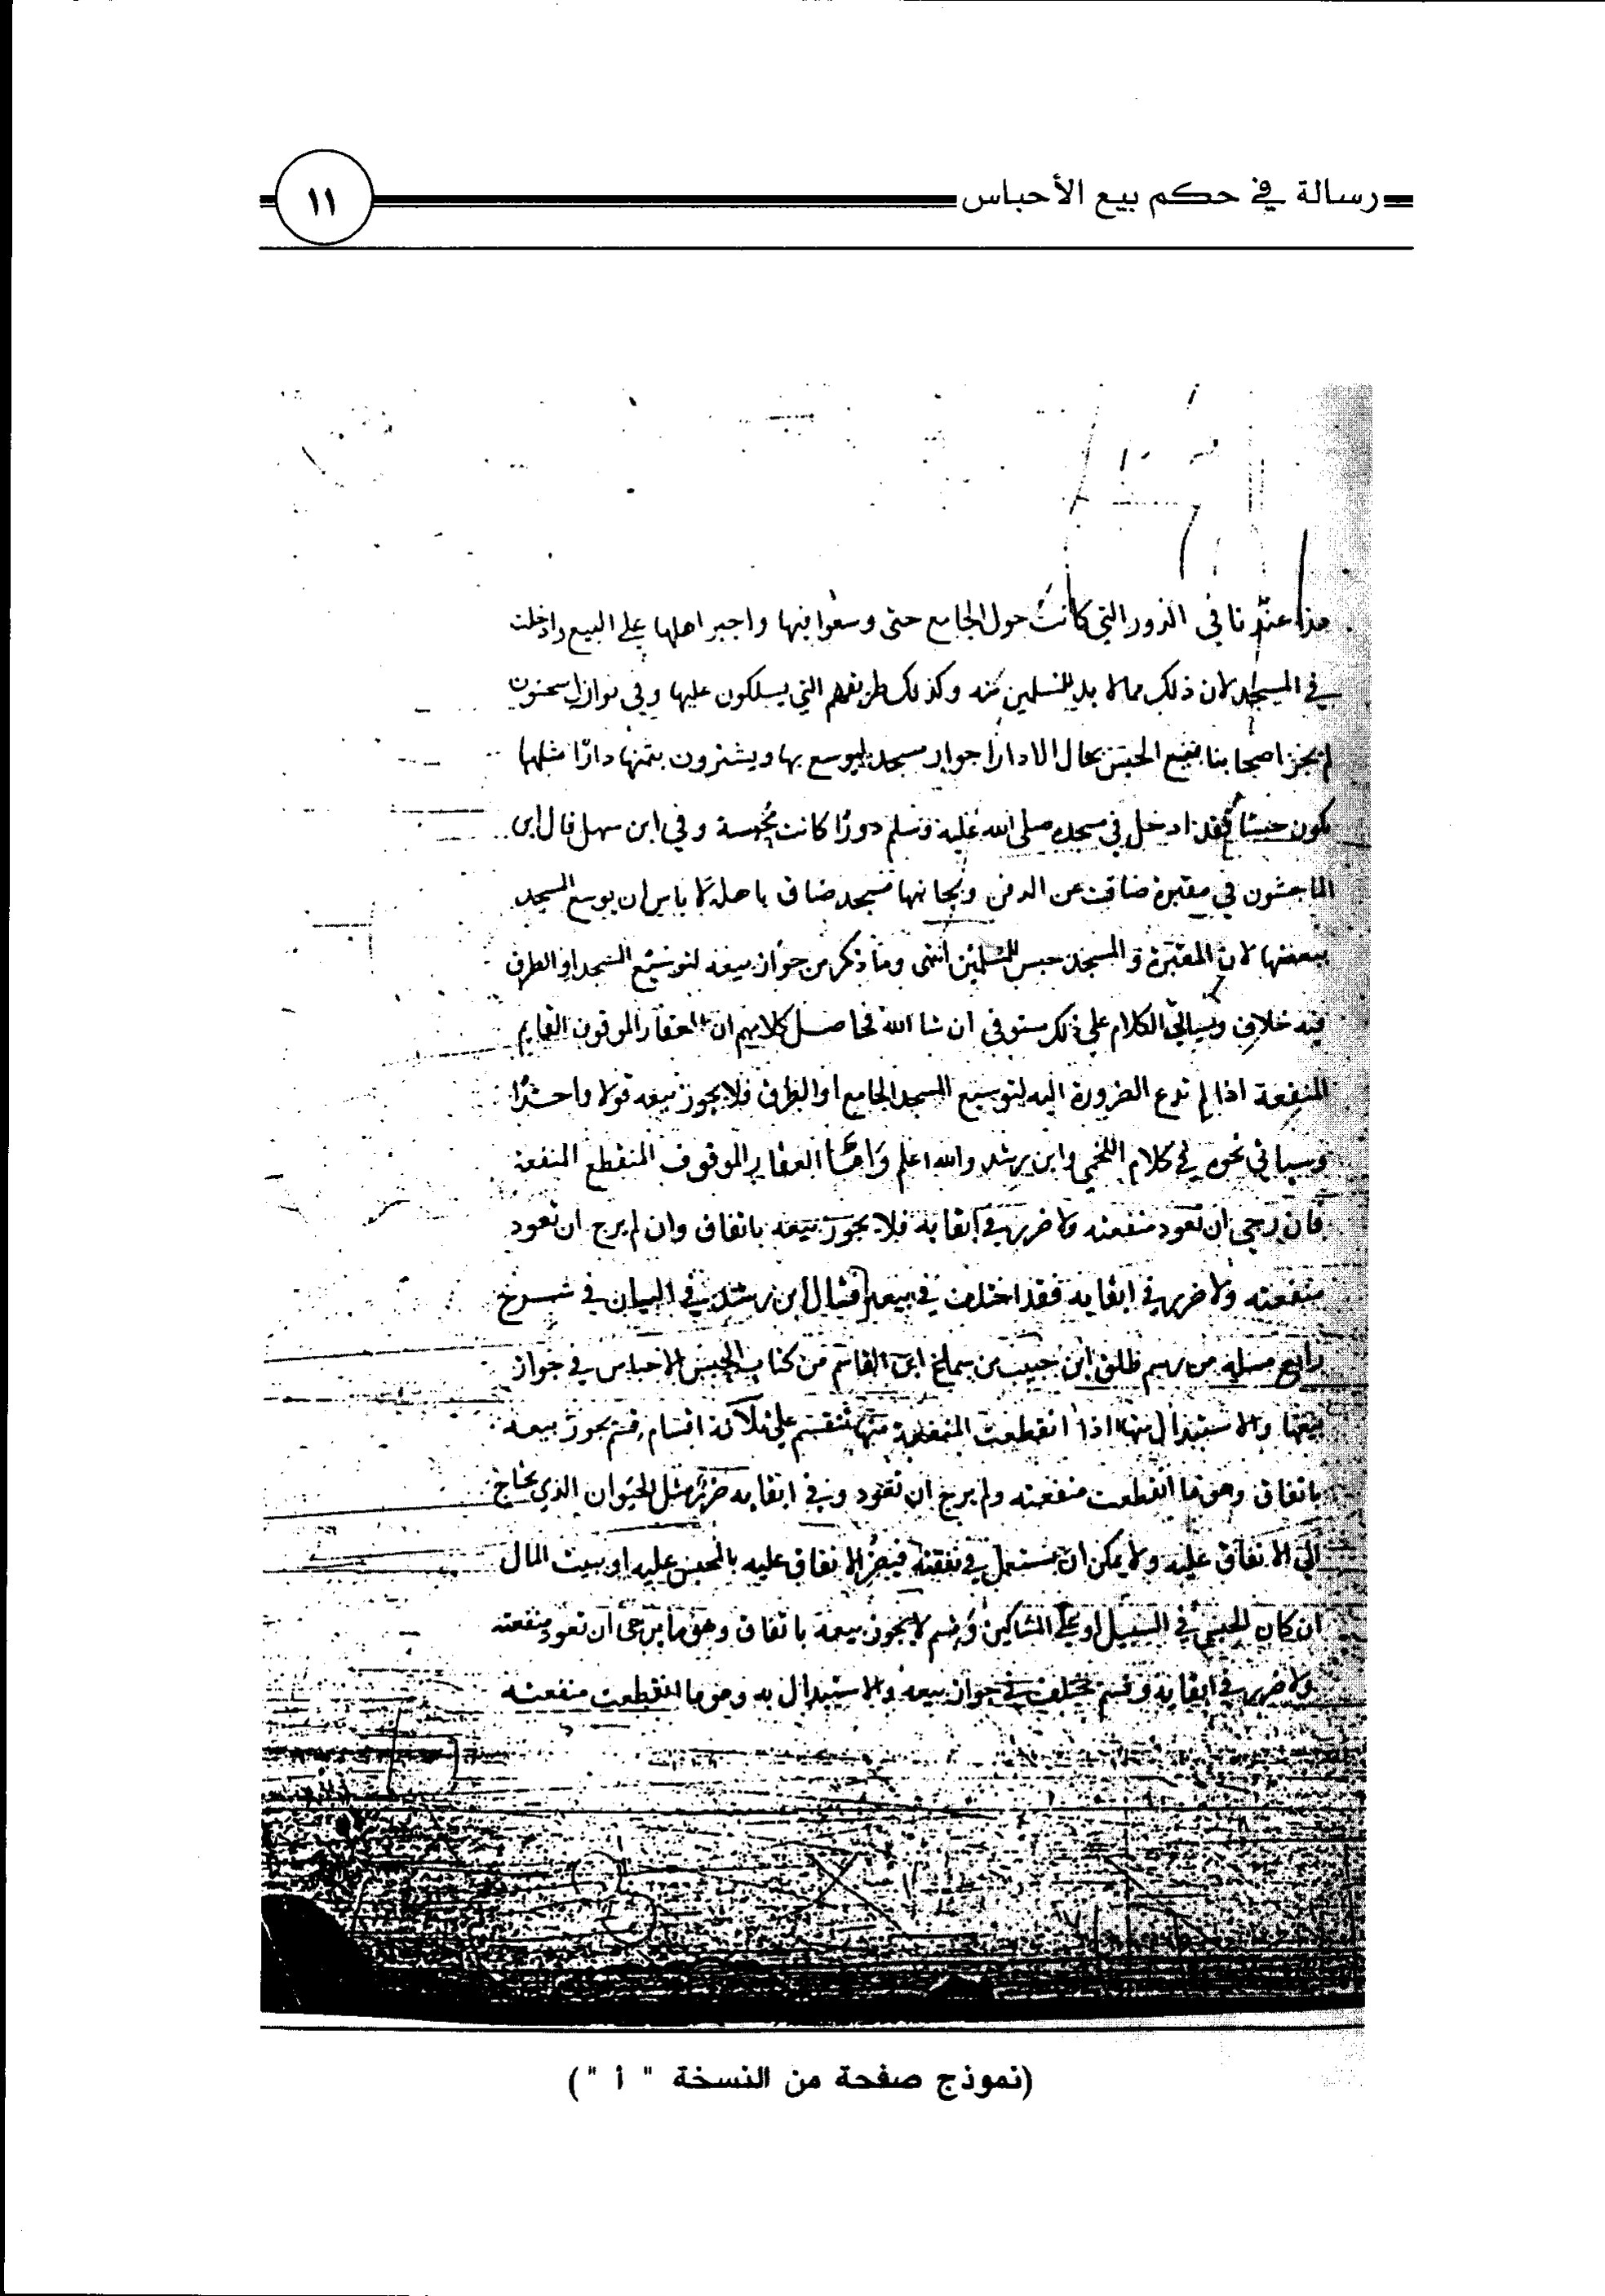 رسالة في حكم بيع الأحباس
١١
هذا عندنا في الدور التي كانت حول الجامع حتى وسعوا فيها واجبر اهلها على البيع وادخلت
في المسجد لان ذلك مما لا بد للمسلمين منه وكذلك طريقهم التي يسلكون عليها وفي نوازل سحنون
لم يجز اصحابنا بيع الحبس بحال الا دارا جوار مسجد ليوسع بها ويشترون بثمنها دارا مثلها
تكون حبسا فقد ادخل في مسجده صلى الله عليه وسلم دورا كانت محبسة وفي ابن سهل قال ابن
الماجشون في مقبرة ضاقت عن الدفن وبجانبها مسجد ضاق باهله لا باس ان يوسع المسجد
ببعضها لان المقبرة والمسجد حبس للمسلمين انتهى وما ذكر من جواز بيعه لتوسيع المسجد او الطرق
فيه خلاف وسياتي الكلام على ذلك مستوفى ان شا الله فحاصل كلامهم ان العقار الموقوف القايم
المنفعة اذا لم تدع الضرورة اليه لتوسيع المسجد الجامع او الطرق فلا يجوز بيعه قولا واحدا
وسياتي نحوه في كلام اللخمي وابن رشد والله اعلم واما العقار الموقوف المنقطع المنفعة
فان رجي ان تعود منفعته ولا ضرر في ابقايه فلا يجوز بيعه باتفاق وان لم يرج ان تعود
منفعته ولا ضرر في ابقايه فقد اختلف في بيعه قال ابن رشد في البيان في شرح
رابع مسلة من رسم طلق ابن حبيب من سماع ابن القاسم من كتاب الحبس الاحباس في جواز
بيعها والاستبدال بها اذا انقطعت المنفعة منها تنقسم على ثلاثة اقسام قسم يجوز بيعه
باتفاق وهو ما انقطعت منفعته ولم يرج ان تعود وفي ابقايه ضرر مثل الحيوان الذي يحتاج
الى الانفاق عليه ولا يمكن ان يستعمل في نفقته فيضر الانفاق عليه بالمحبس عليه او بيت المال
ان كان الحبس في السبيل او على المساكين وقسم لا يجوز بيعه باتفاق وهو ما يرجى ان تعود منفعته
ولا ضرر في ابقايه وقسم يختلف في جواز بيعه والاستبدال به وهو ما انقطعت منفعته
(نموذج صفحة من النسخة " أ ")